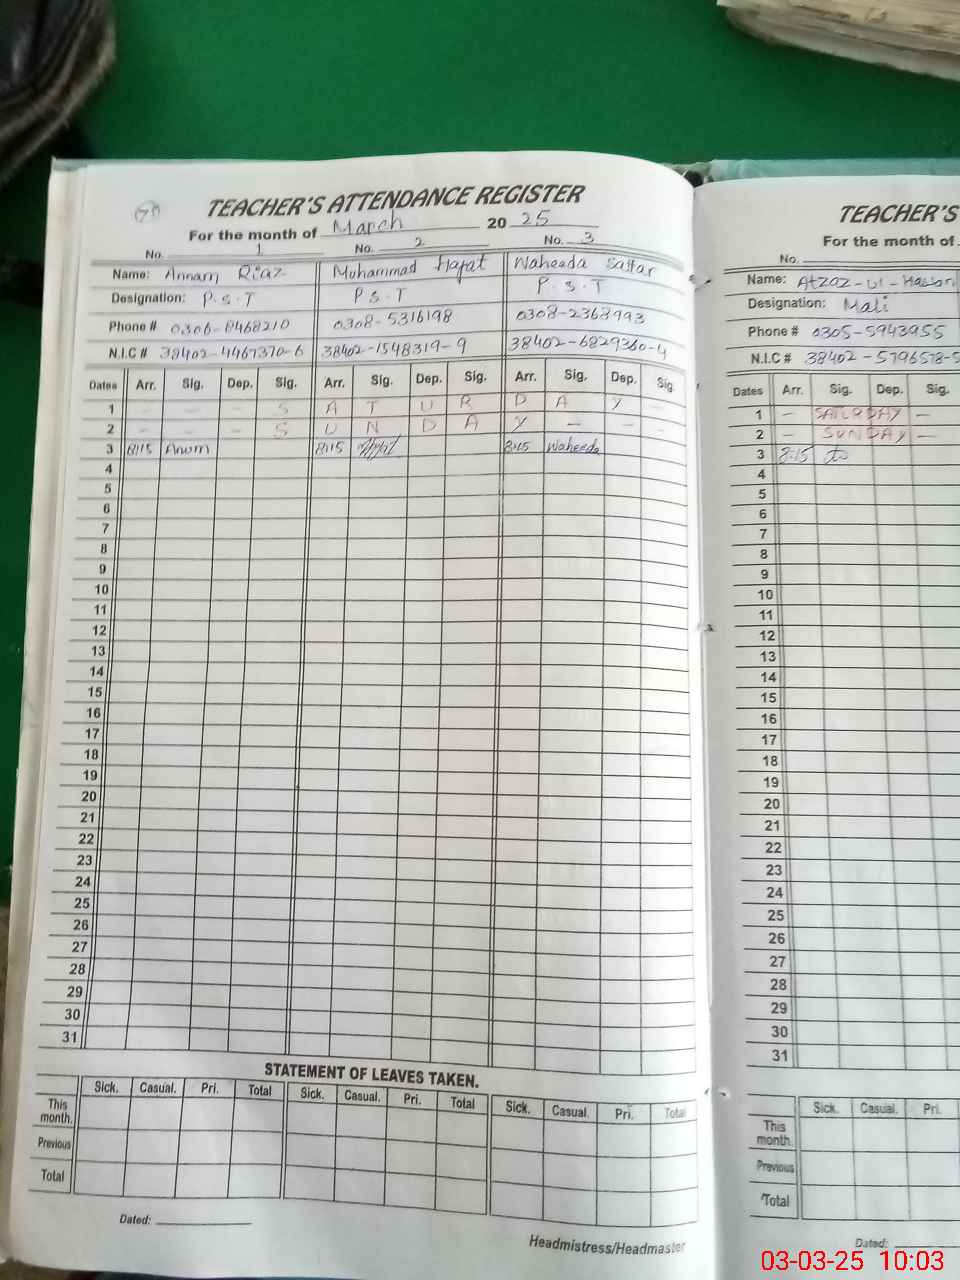 TEACHER'S ATTENDANCE REGISTER
For the month of March 2025
No. 1 No. 2 No. 3
Name: Annam Riaz Muhammad Hayat Waheeda Sattar
Designation: P.S.T P.S.T P.S.T
Phone # 0306-8468210 0308-5316198 0308-2368993
N.I.C # 38402-4467370-6 38402-1548319-9 38402-6829360-4
Dates Arr. Sig. Dep. Sig. Arr. Sig. Dep. Sig. Arr. Sig. Dep. Sig.
1 - - - S A T U R D A Y -
2 - - - S U N D A Y - - -
3 8:15 Anum 8:15 8:15 Waheeda
4
5
6
7
8
9
10
11
12
13
14
15
16
17
18
19
20
21
22
23
24
25
26
27
28
29
30
31
STATEMENT OF LEAVES TAKEN.
Sick. Casual. Pri. Total Sick. Casual. Pri. Total Sick. Casual. Pri. Total
This month.
Previous
Total
Dated:
Headmistress/Headmaster
TEACHER'S
For the month of
No.
Name: Atzaz-ul-Hassan
Designation: Mali
Phone # 0305-5943955
N.I.C # 38402-5796578-5
Dates Arr. Sig. Dep. Sig.
1 - SATURDAY -
2 - SUNDAY -
3 8:15
4
5
6
7
8
9
10
11
12
13
14
15
16
17
18
19
20
21
22
23
24
25
26
27
28
29
30
31
Sick. Casual. Pri.
This month.
Previous
Total
Dated:
03-03-25 10:03